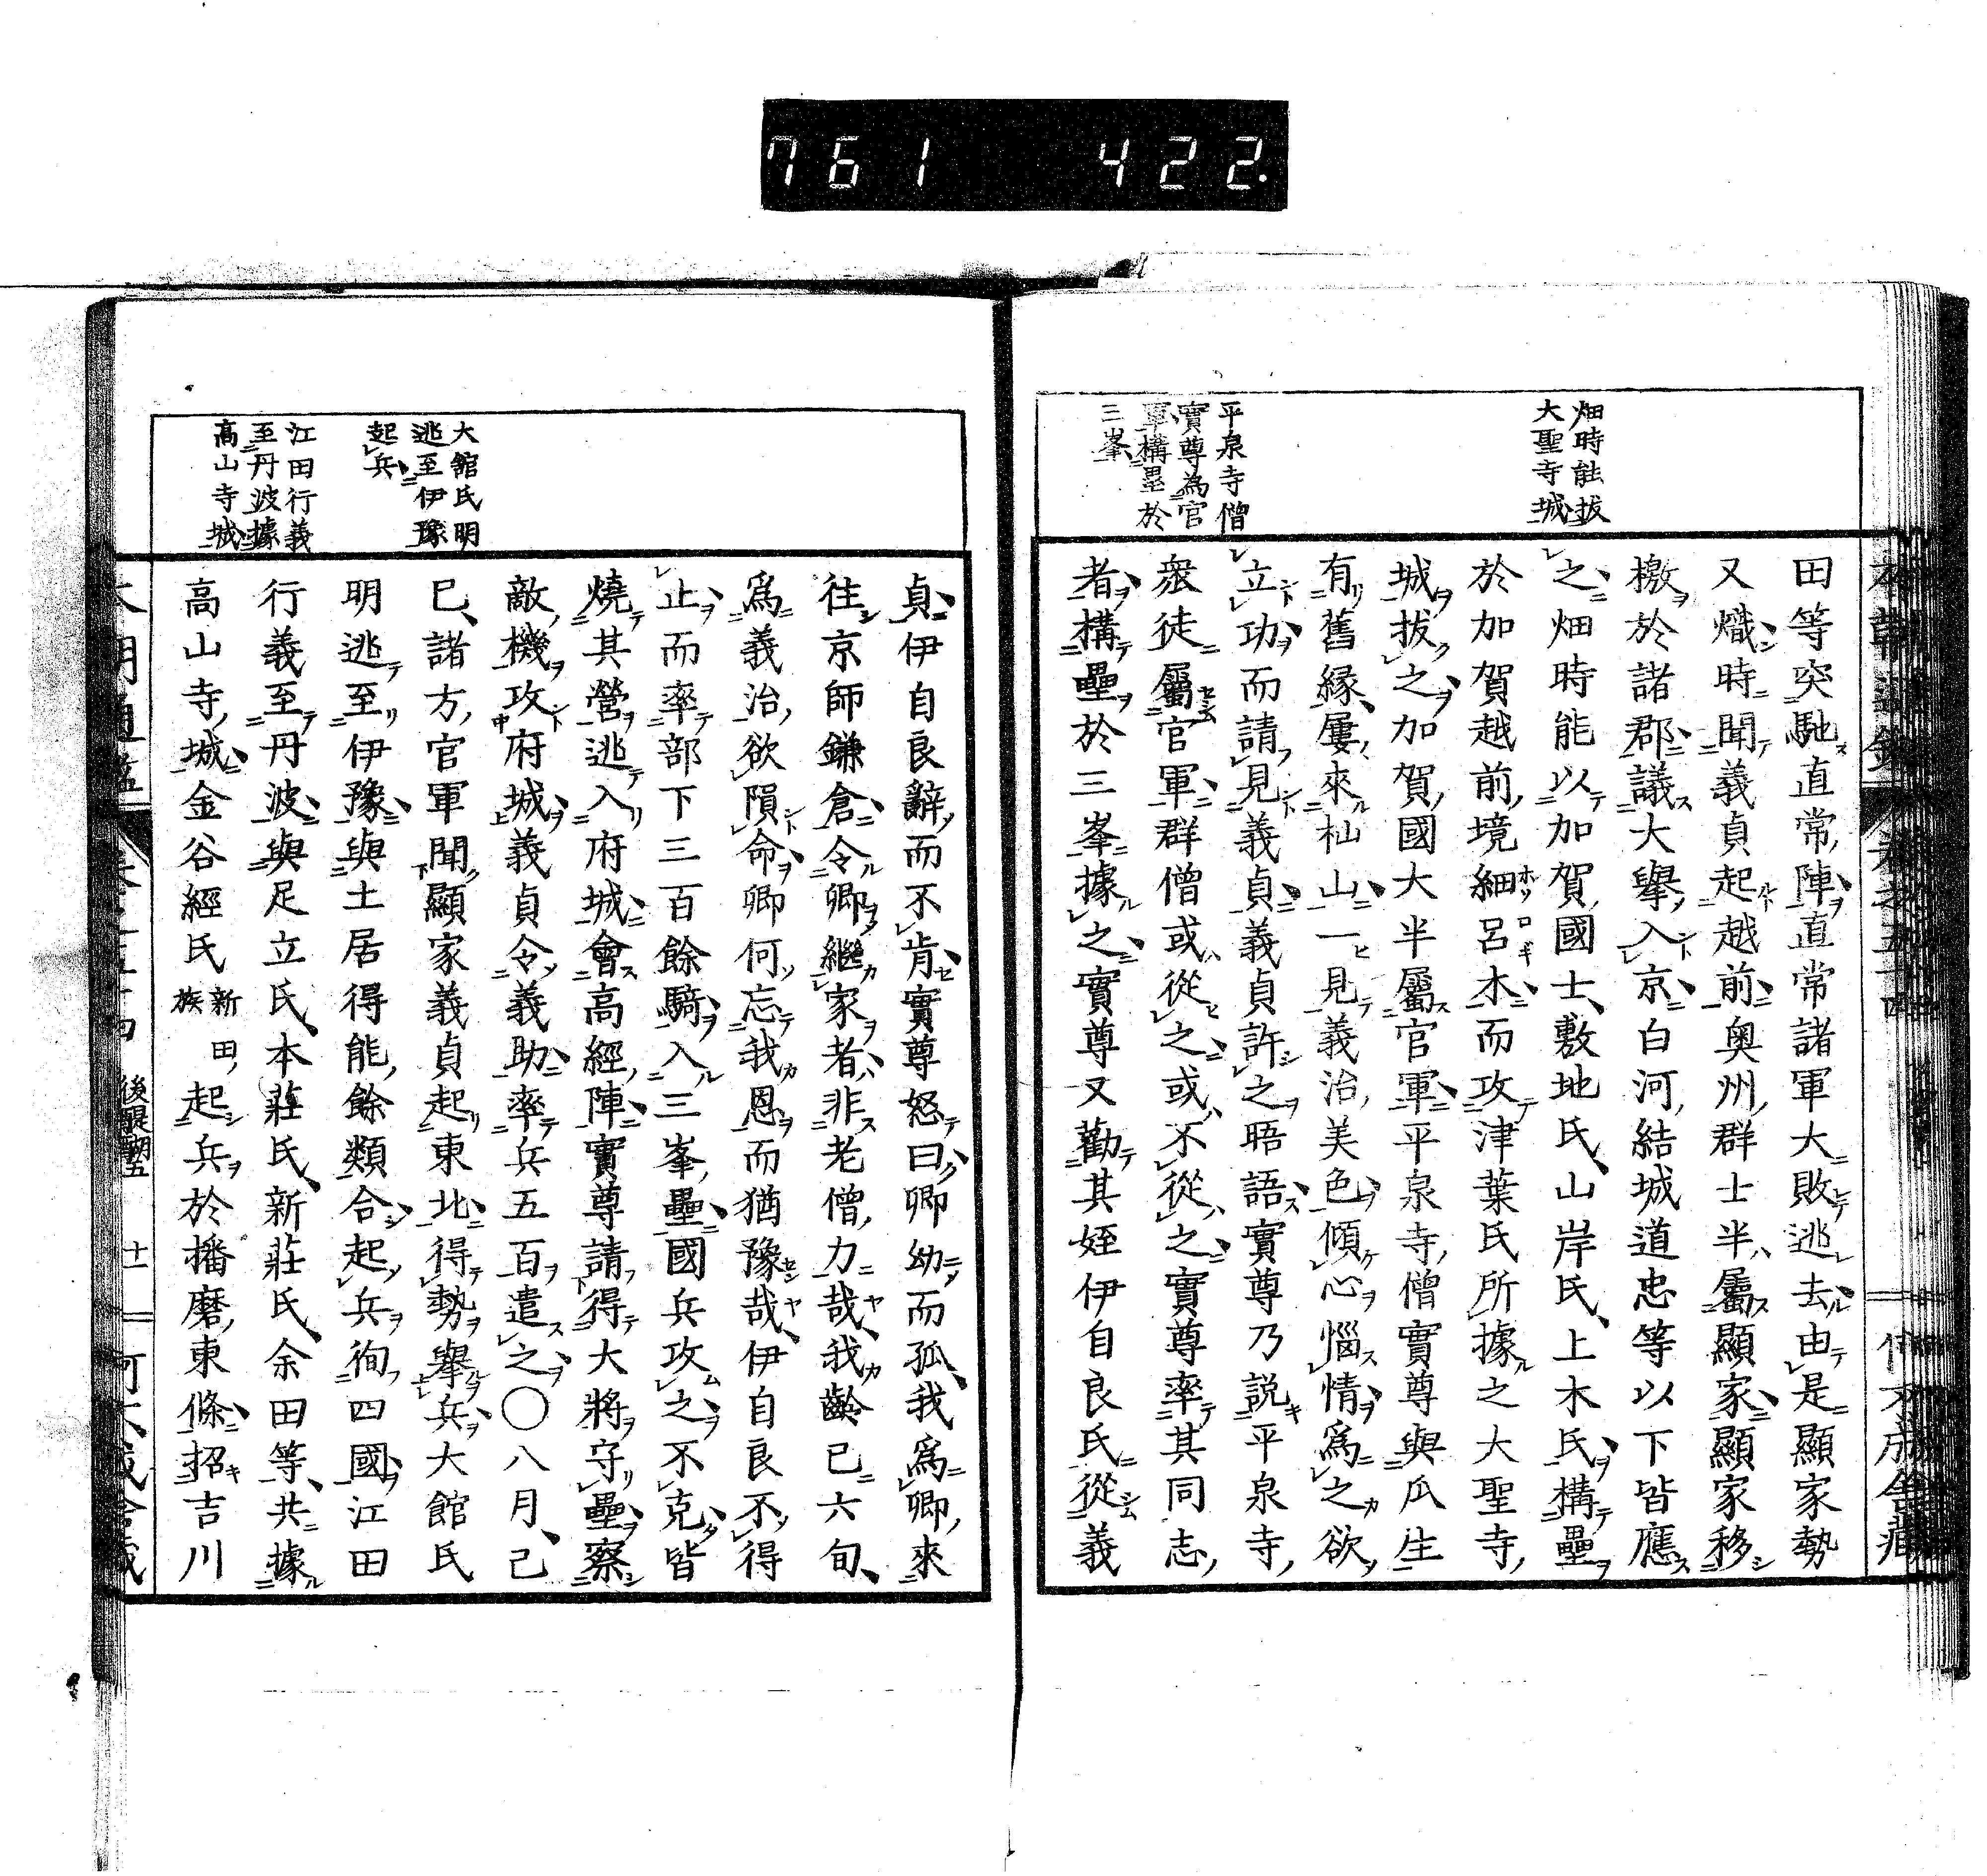 761 422.
畑時能拔
大聖寺城
平泉寺僧
實尊為官
軍構壘於
三峯
田等突馳直常陣直常諸軍大敗逃去由是顯家勢
又熾時聞義貞起越前奥州群士半屬顯家顯家移
檄於諸郡議大擧入京白河結城道忠等以下皆應
之畑時能以加賀國士敷地氏山岸氏上木氏構壘
於加賀越前境細呂木而攻津葉氏所據之大聖寺
城拔之加賀國大半屬官軍平泉寺僧實尊與瓜生
有舊縁屢來杣山一見義治美色傾心惱情爲之欲
立功而請見義貞義貞許之晤語實尊乃説平泉寺
衆徒屬官軍群僧或從之或不從之實尊率其同志
者構壘於三峯據之實尊又勸其姪伊自良氏從義
大舘氏明
逃至伊豫
起兵
江田行義
至丹波據
高山寺城
貞伊自良辭而不肯實尊怒曰卿幼而孤我爲卿來
往京師鎌倉令卿繼家者非老僧力哉我齡已六旬
爲義治欲隕命卿何忘我恩而猶豫哉伊自良不得
止而率部下三百餘騎入三峯壘國兵攻之不克皆
燒其營逃入府城會高經陣實尊請得大將守壘察
敵機攻府城義貞令義助率兵五百遣之〇八月己
巳諸方官軍聞顯家義貞起東北得勢擧兵大館氏
明逃至伊豫與土居得能餘類合起兵徇四國江田
行義至丹波與足立氏本莊氏新莊氏余田等共據
高山寺城金谷經氏新田族起兵於播磨東條招吉川
後醍醐五 十一